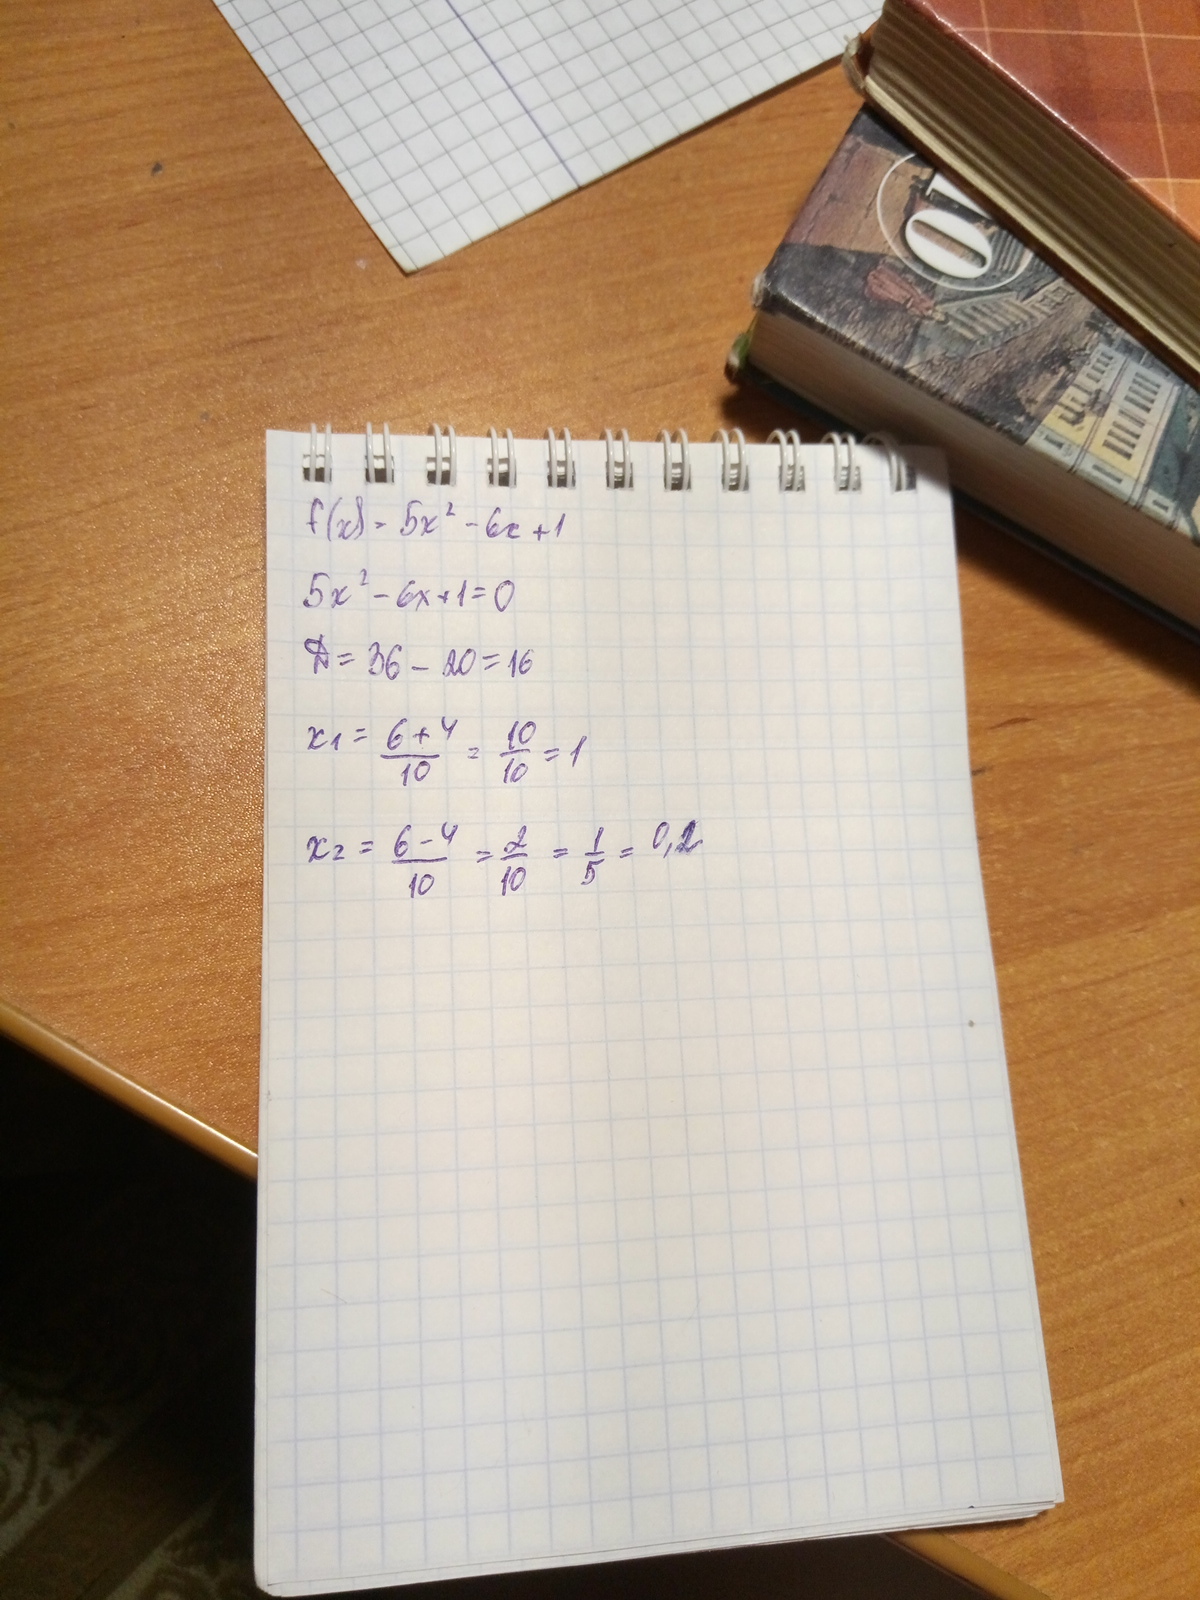 f(x) = 5x² - 6x + 1
5x² - 6x + 1 = 0
D = 36 - 20 = 16
x₁ = \frac{6+4}{10} = \frac{10}{10} = 1
x₂ = \frac{6-4}{10} = \frac{2}{10} = \frac{1}{5} = 0,2